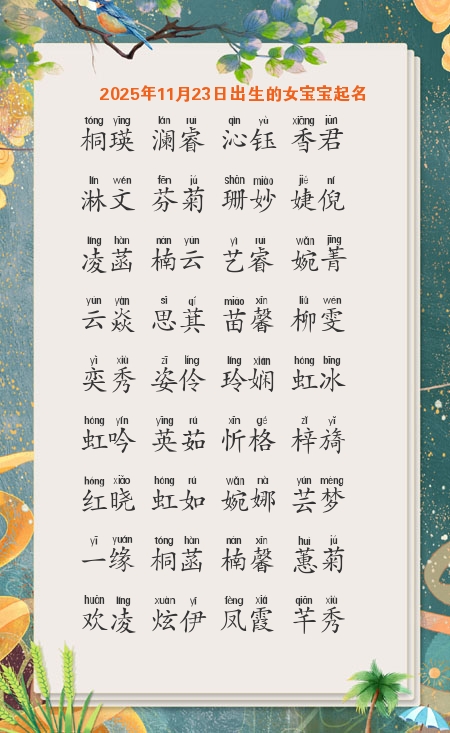 2025年11月23日出生的女宝宝起名
tóng yīng lán ruì qìn yù xiāng jūn
桐瑛 澜睿 沁钰 香君
lín wén fēn jú shān miào jié ní
淋文 芬菊 珊妙 婕倪
líng hàn nán yún yì ruì wǎn jīng
凌菡 楠云 艺睿 婉菁
yún yàn sī qí miáo xīn liǔ wén
云焱 思萁 苗馨 柳雯
yì xiù zī líng líng xián hóng bīng
奕秀 姿伶 玲娴 虹冰
hóng yín yīng rú xīn gé zǐ yǐ
虹吟 英茹 忻格 梓旖
hóng xiǎo hóng rú wǎn nà yún mèng
红晓 虹如 婉娜 芸梦
yī yuán tóng hàn nán xīn huì jú
一缘 桐菡 楠馨 蕙菊
huān líng xuàn yī fèng xiá qiān xiù
欢凌 炫伊 凤霞 芊秀